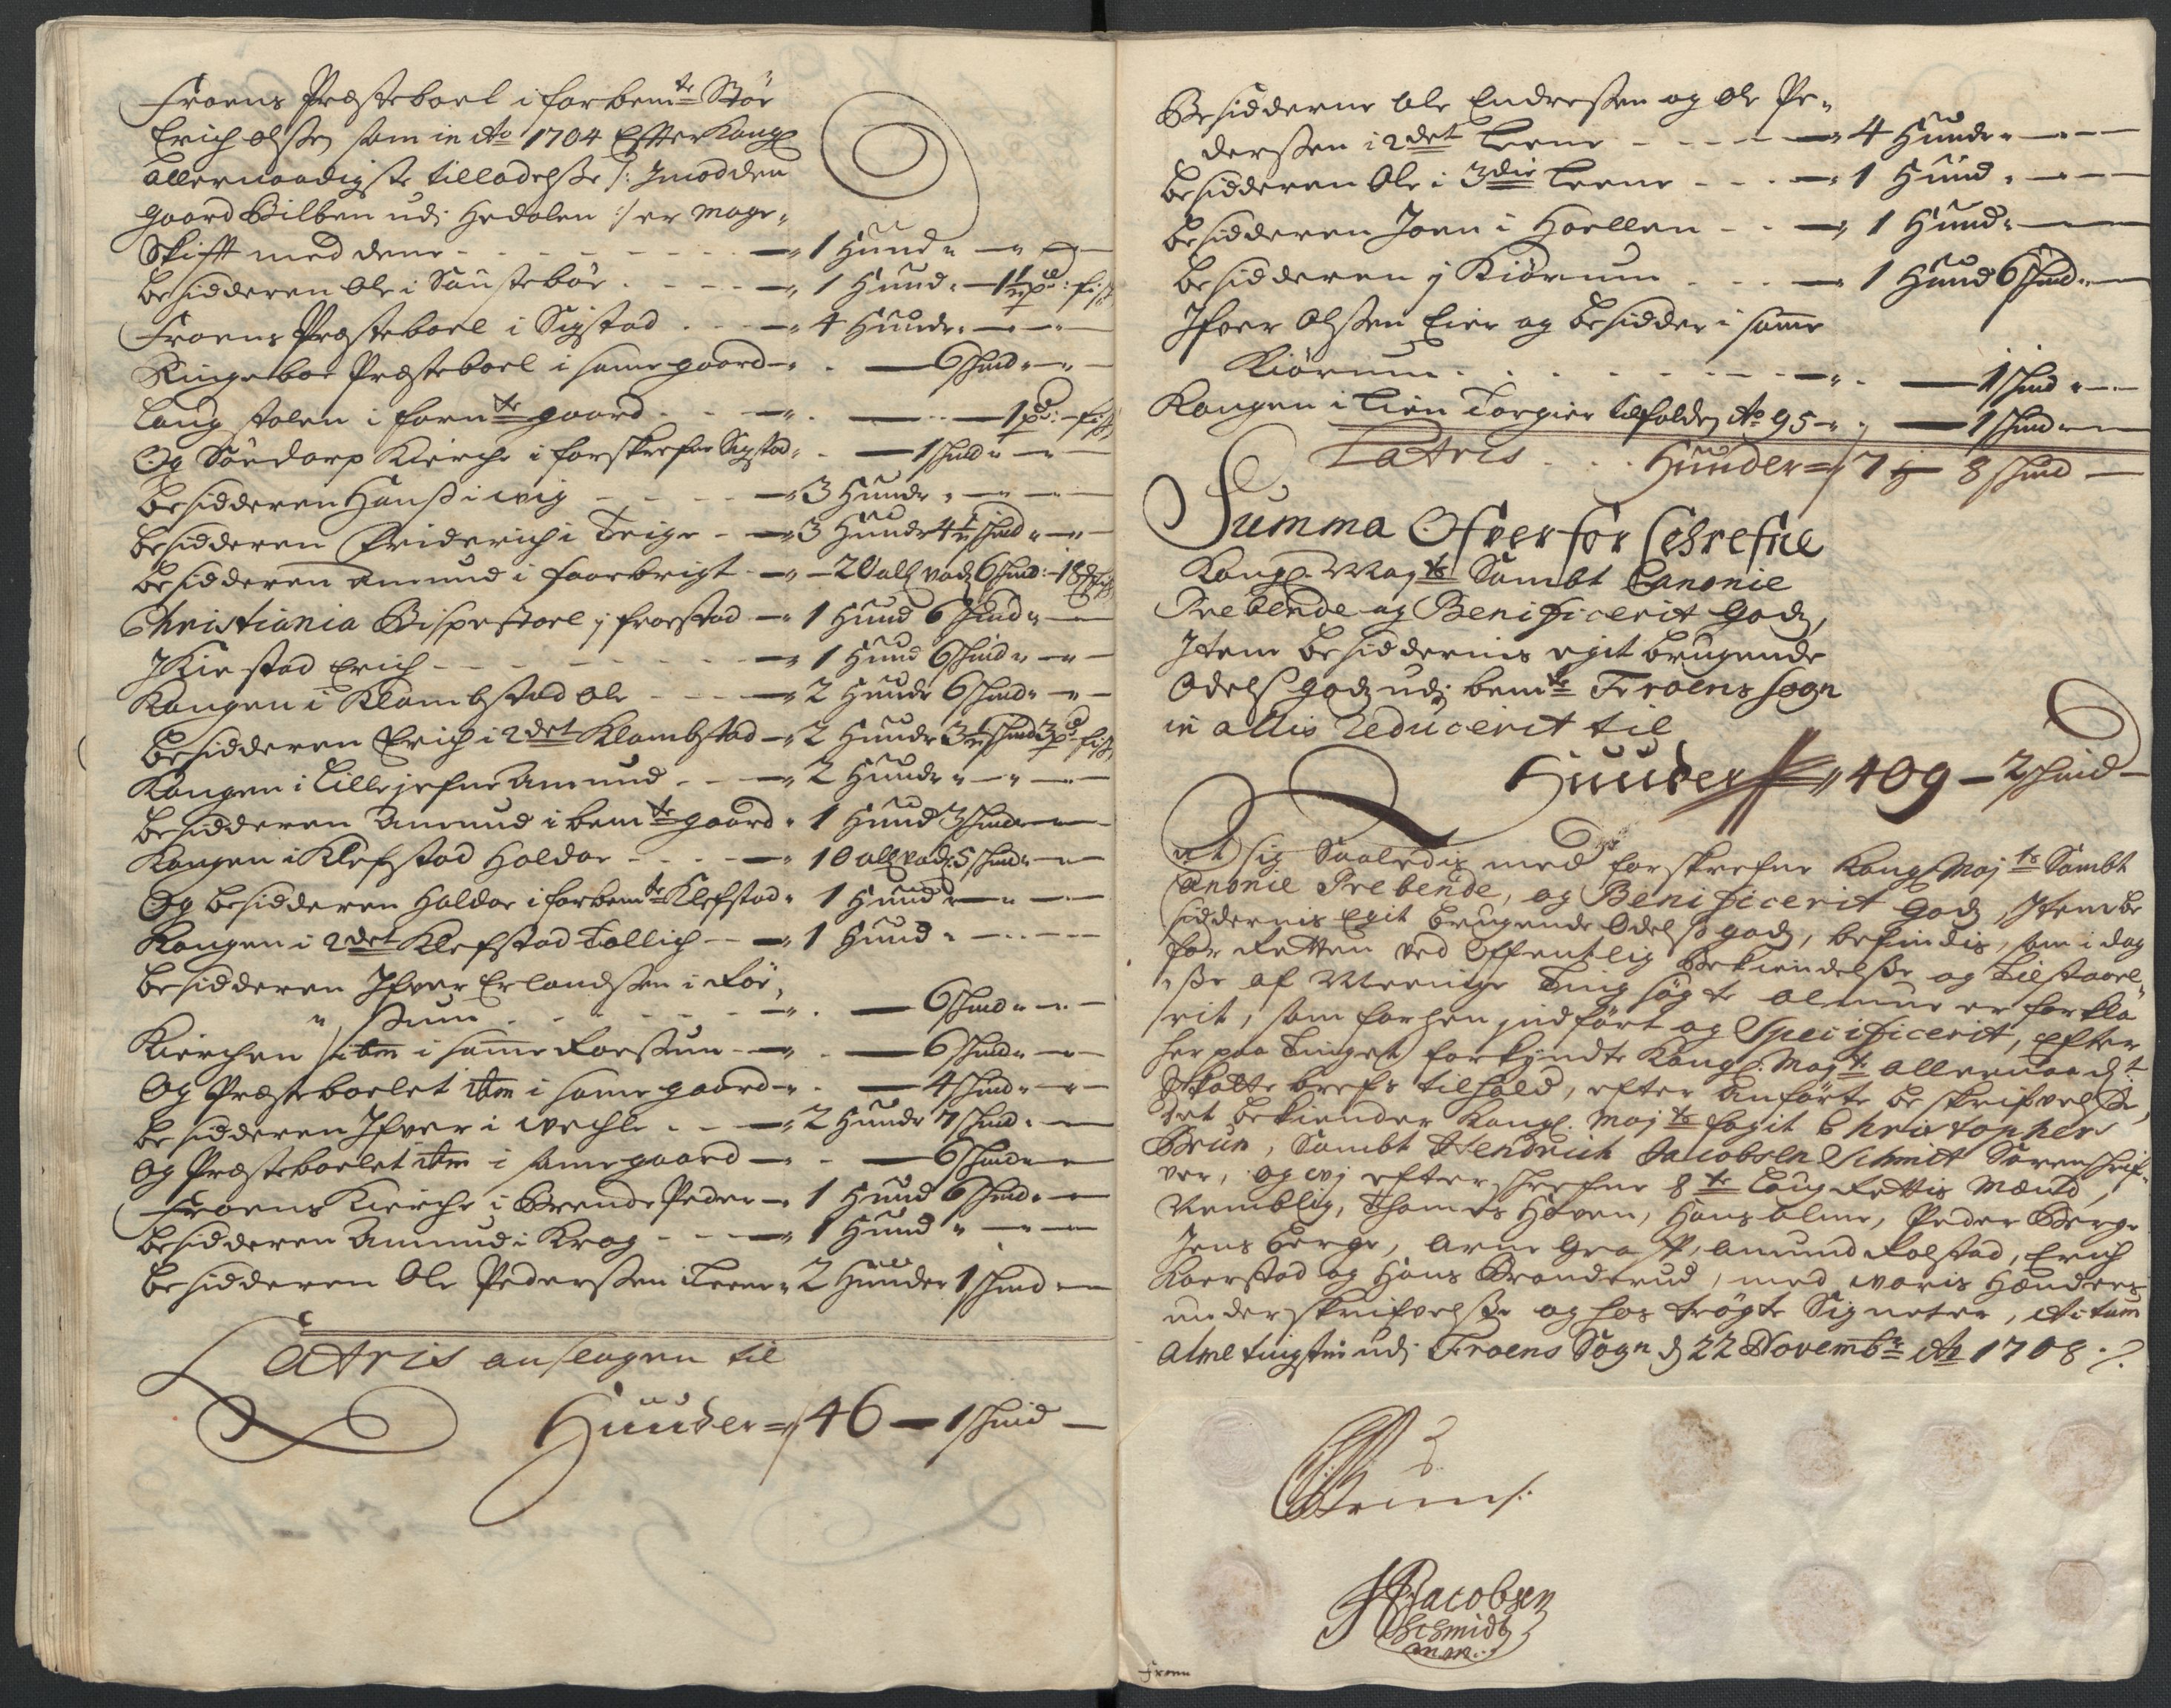 Froens Præsteboel i forbem.te Stör
Erich Olßen som in Ao 1704 Effter Kongl
Allernaadigste tilladelsße /: Jmod den
Gaard Bilben udj Hedalen :/ er mage,
Skifft med dend - - - 1 Hund
besidderen Ole i Sandstebör - - - 1 Hund - 1½ pd: fisk
Froens Præsteboel i Sigstad - - - 4 Hunder
Ringeboe Præsteboel i samme gaard - - 6 skind
Laugstolen i forn.te gaard - - - 1 pd: fisk
Og Söedorp Kierche i forskrefne Sigstad - 1 skind
besidderen Hanß i wiig - - - 3 Hunder
besidderen Friderich i Teige - 3 Hunder 4½ skind
besidderen Amund i Faarbrigt - 20 all vad 6 skind
Christiania Bispestoel j Froestad - 1 Hund 6 skind
J Kiestad Erich - - - 1 Hund 6 skind
Kongen i Klombstad Ole - - - 2 Hunder 6 skind
besidderen Erich i 2det Klombstad - 2 Hunder 3½ skind 3 pd fisk
Kongen i Lillejefne Amund - - 2 Hunder
besidderen Amund i bem.te gaard - 1 Hund 3 skind
Kongen i Klefstad Haldor - - - 10 all vad 5 skind
Og besidderen Haldor i forbem.te Klefstad - 1 Hund
Kongen i 2det Klefstad Tollich - - 1 Hund
besidderen Jfver Erlandßen i Foe,
ßum - - - 6 skind
Kierchen ibm i samme Foeßum - - 6 skind
Og Præsteboelet ibm i samme gaard - 4 skind
besidderen Jfver i wechle - - 2 Hunder 7 skind
Og Præsteboelet ibm i samme gaard - 6 skind
Froens Kierche i Brende Peder - 1 Hund 6 skind
besidderen Amund i Krog - - - 1 Hund
besidderen Ole Pederßen i Leene - 2 Hunder 1 skind
Latris anslagen til
Huuder = 46 - 1 skind
Besidderne Ole Endreßen og Ole Pe,
derßen i 2det Leene - - - 4 Hunder
besidderen Ole i 3die Leene - - 1 Hund
besidderen Joen i Hoellen - - 1 Hund
besidderen j Kiörum - - - 1 Hund 6 skind
Jfver Olßen Eier og besidder i samme
Kiörum - - - 1 skind
Kongen i Lien Torgier tilfalden Ao 95 - 1 skind
Latris - - Huuder = 7 - 8 skind
Summa Ofverforschrefne
Kongl. May.ts Sambt Canonie
Prebende og Benificerit Godz,
Jtem besiddernis egit brugende
Odelß godz udj bem.te Froens sogn
in allis Reducerit til
Huuder 409 - 2 skind
At sig Saaledis med forskrefne Kongl May.ts Sambt
Canonie Prebende, og Benificerit Godz, Jtem be
siddernis Egit brugende Odelß godz, befindis, som i dag
for Retten ved Offentlig Bekiendelße og Tilstaael,
ße af Meenige Ting søgte Almue er forkla
rit, som forhen indført og Specificerit, efter
her paa Tinget forkyndte Kongl. May.ts allernaad.t
Skatte brefs tilhold, efter Anförte beskrifvelße,
Det bekiender Kongl. May.ts fogit Christopher
Brun, Sambt Hendrich Jacobsen Schmit Sorenschrif,
ver, og vj efterschrefne 8te Laug Rettis Mænd,
Nemblig, Thomas Hoven, Hans Alme, Peder Berge
Jens Berge, Arne Graff, Amund Folstad, Erich
Kaerstad og Hans Branderud, med woris Hænders
underskrifvelße og hos trögte Signeter, Actum
Alme tingstue udj Froens Sogn d 22 Novemb.r Ao 1708
CBrun
HJacobsen
Schmidt
m.m.
Froen